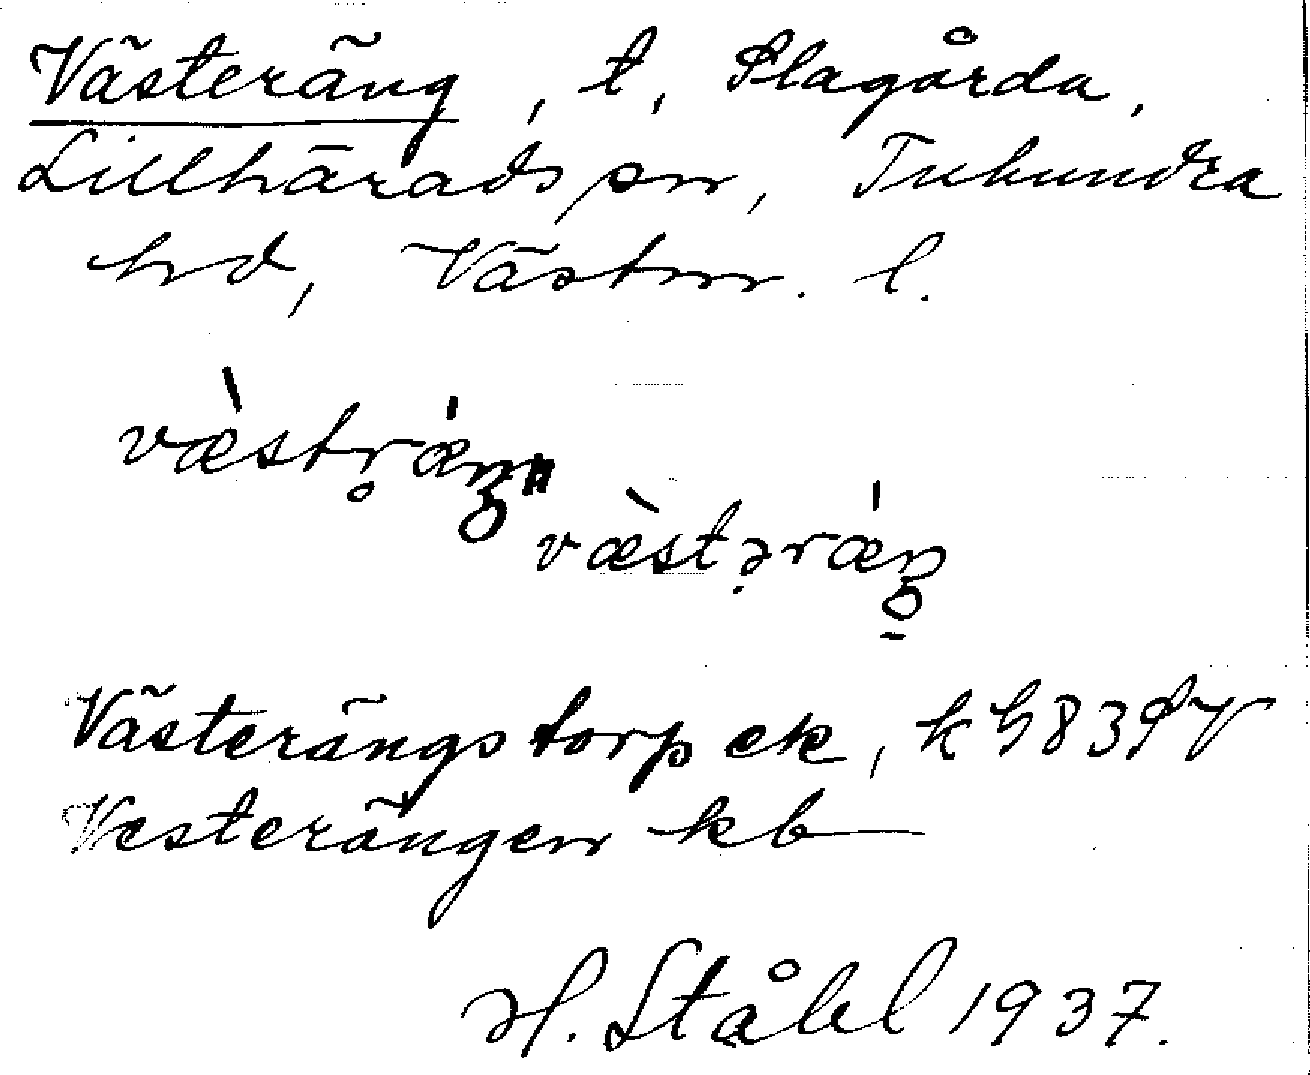 Västeräng, t, Slagårda,
Lillhärads sn, Tuhundra
hd, Västm. l.
væ̀str̥ǽŋ"
væ̀stərǽŋ
Västerängstorp ek, k 983 SV
Vesterängen kb
H. Ståhl 1937.